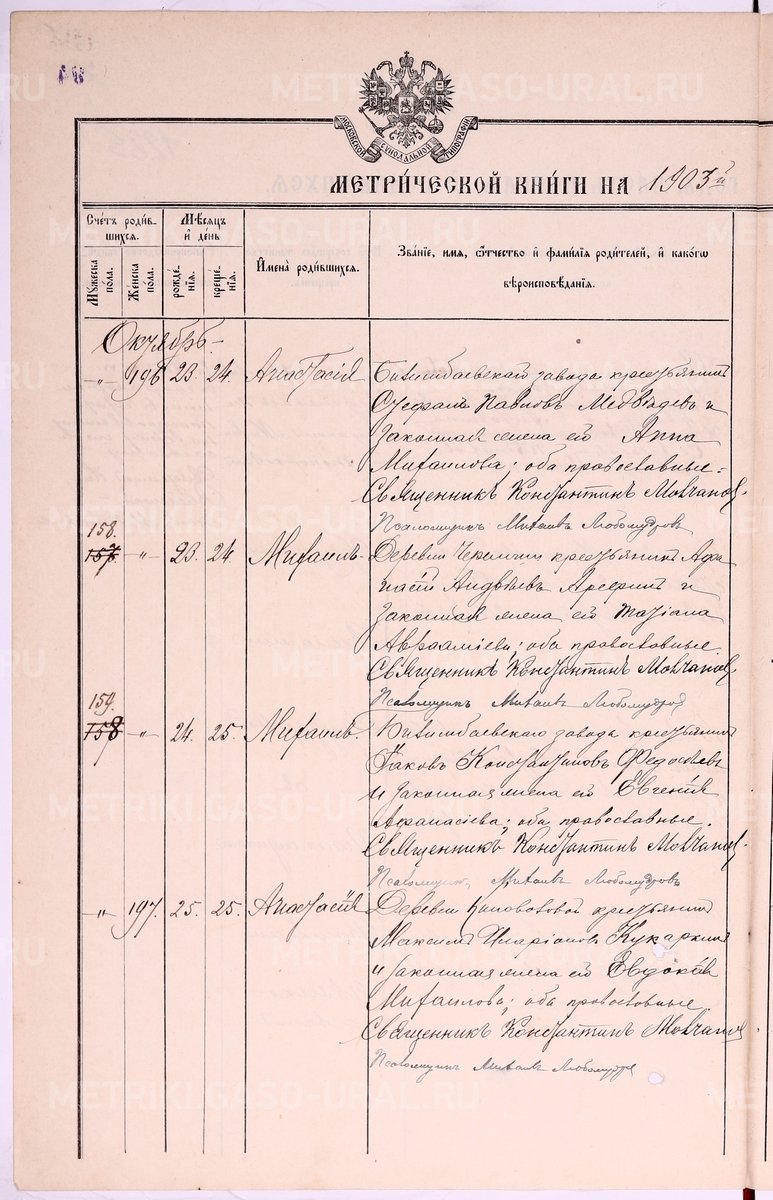 МОСКОВСКОЙ СѴНОДАЛЬНОЙ ТИПОГРАФІИ
МЕТРИ́ЧЕСКОЙ КНИ́ГИ НА 1903й
Сче́тъ роди́в-
шихсѧ.
Мѹ́жеска
по́ла.
Же́нска
по́ла.
Мѣ́сѧцъ
и҆ де́нь
рожде́-
нїѧ.
креще́-
нїѧ.
И҆мена̀ роди́вшихсѧ.
Зва́нїе, и҆мѧ, ѻ҆́тчество и҆ фами́лїѧ роди́телей, и҆ како́гѡ
вѣроисповѣ́данїѧ.
Октябрь.
„ 196 23. 24. Анастасія Билимбаевскаго завода крестьянинъ
Стефанъ Павловъ Медвѣдевъ и
законная жена его Анна
Михаилова; оба православные.
Священникъ Константинъ Молчановъ.
Псаломщикъ Михаилъ Любомудровъ
158.
157 „ 23. 24. Михаилъ. Деревни крестьянинъ Афа
насій Андреевъ и
законная жена его Татіана
Авраамiева; оба православные.
Священникъ Константинъ Молчановъ.
Псаломщикъ Михаилъ Любомудровъ
159.
158 „ 24. 25. Михаилъ. Билимбаевскаго завода крестьянинъ
Іаковъ Константиновъ Федосѣевъ
и законная жена его Евгенія
Афанасіева; оба православные.
Священникъ Константинъ Молчановъ.
Псаломщикъ Михаилъ Любомудровъ
„ 197. 25. 25. Анастасія Деревни Коноваловой крестьянинъ
Максимъ Иларіоновъ Кукаркинъ
и законная жена его Евдокія
Михаилова; оба православные.
Священникъ Константинъ Молчановъ
Псаломщикъ Михаилъ Любомудровъ
METRIKI.GASO-URAL.RU